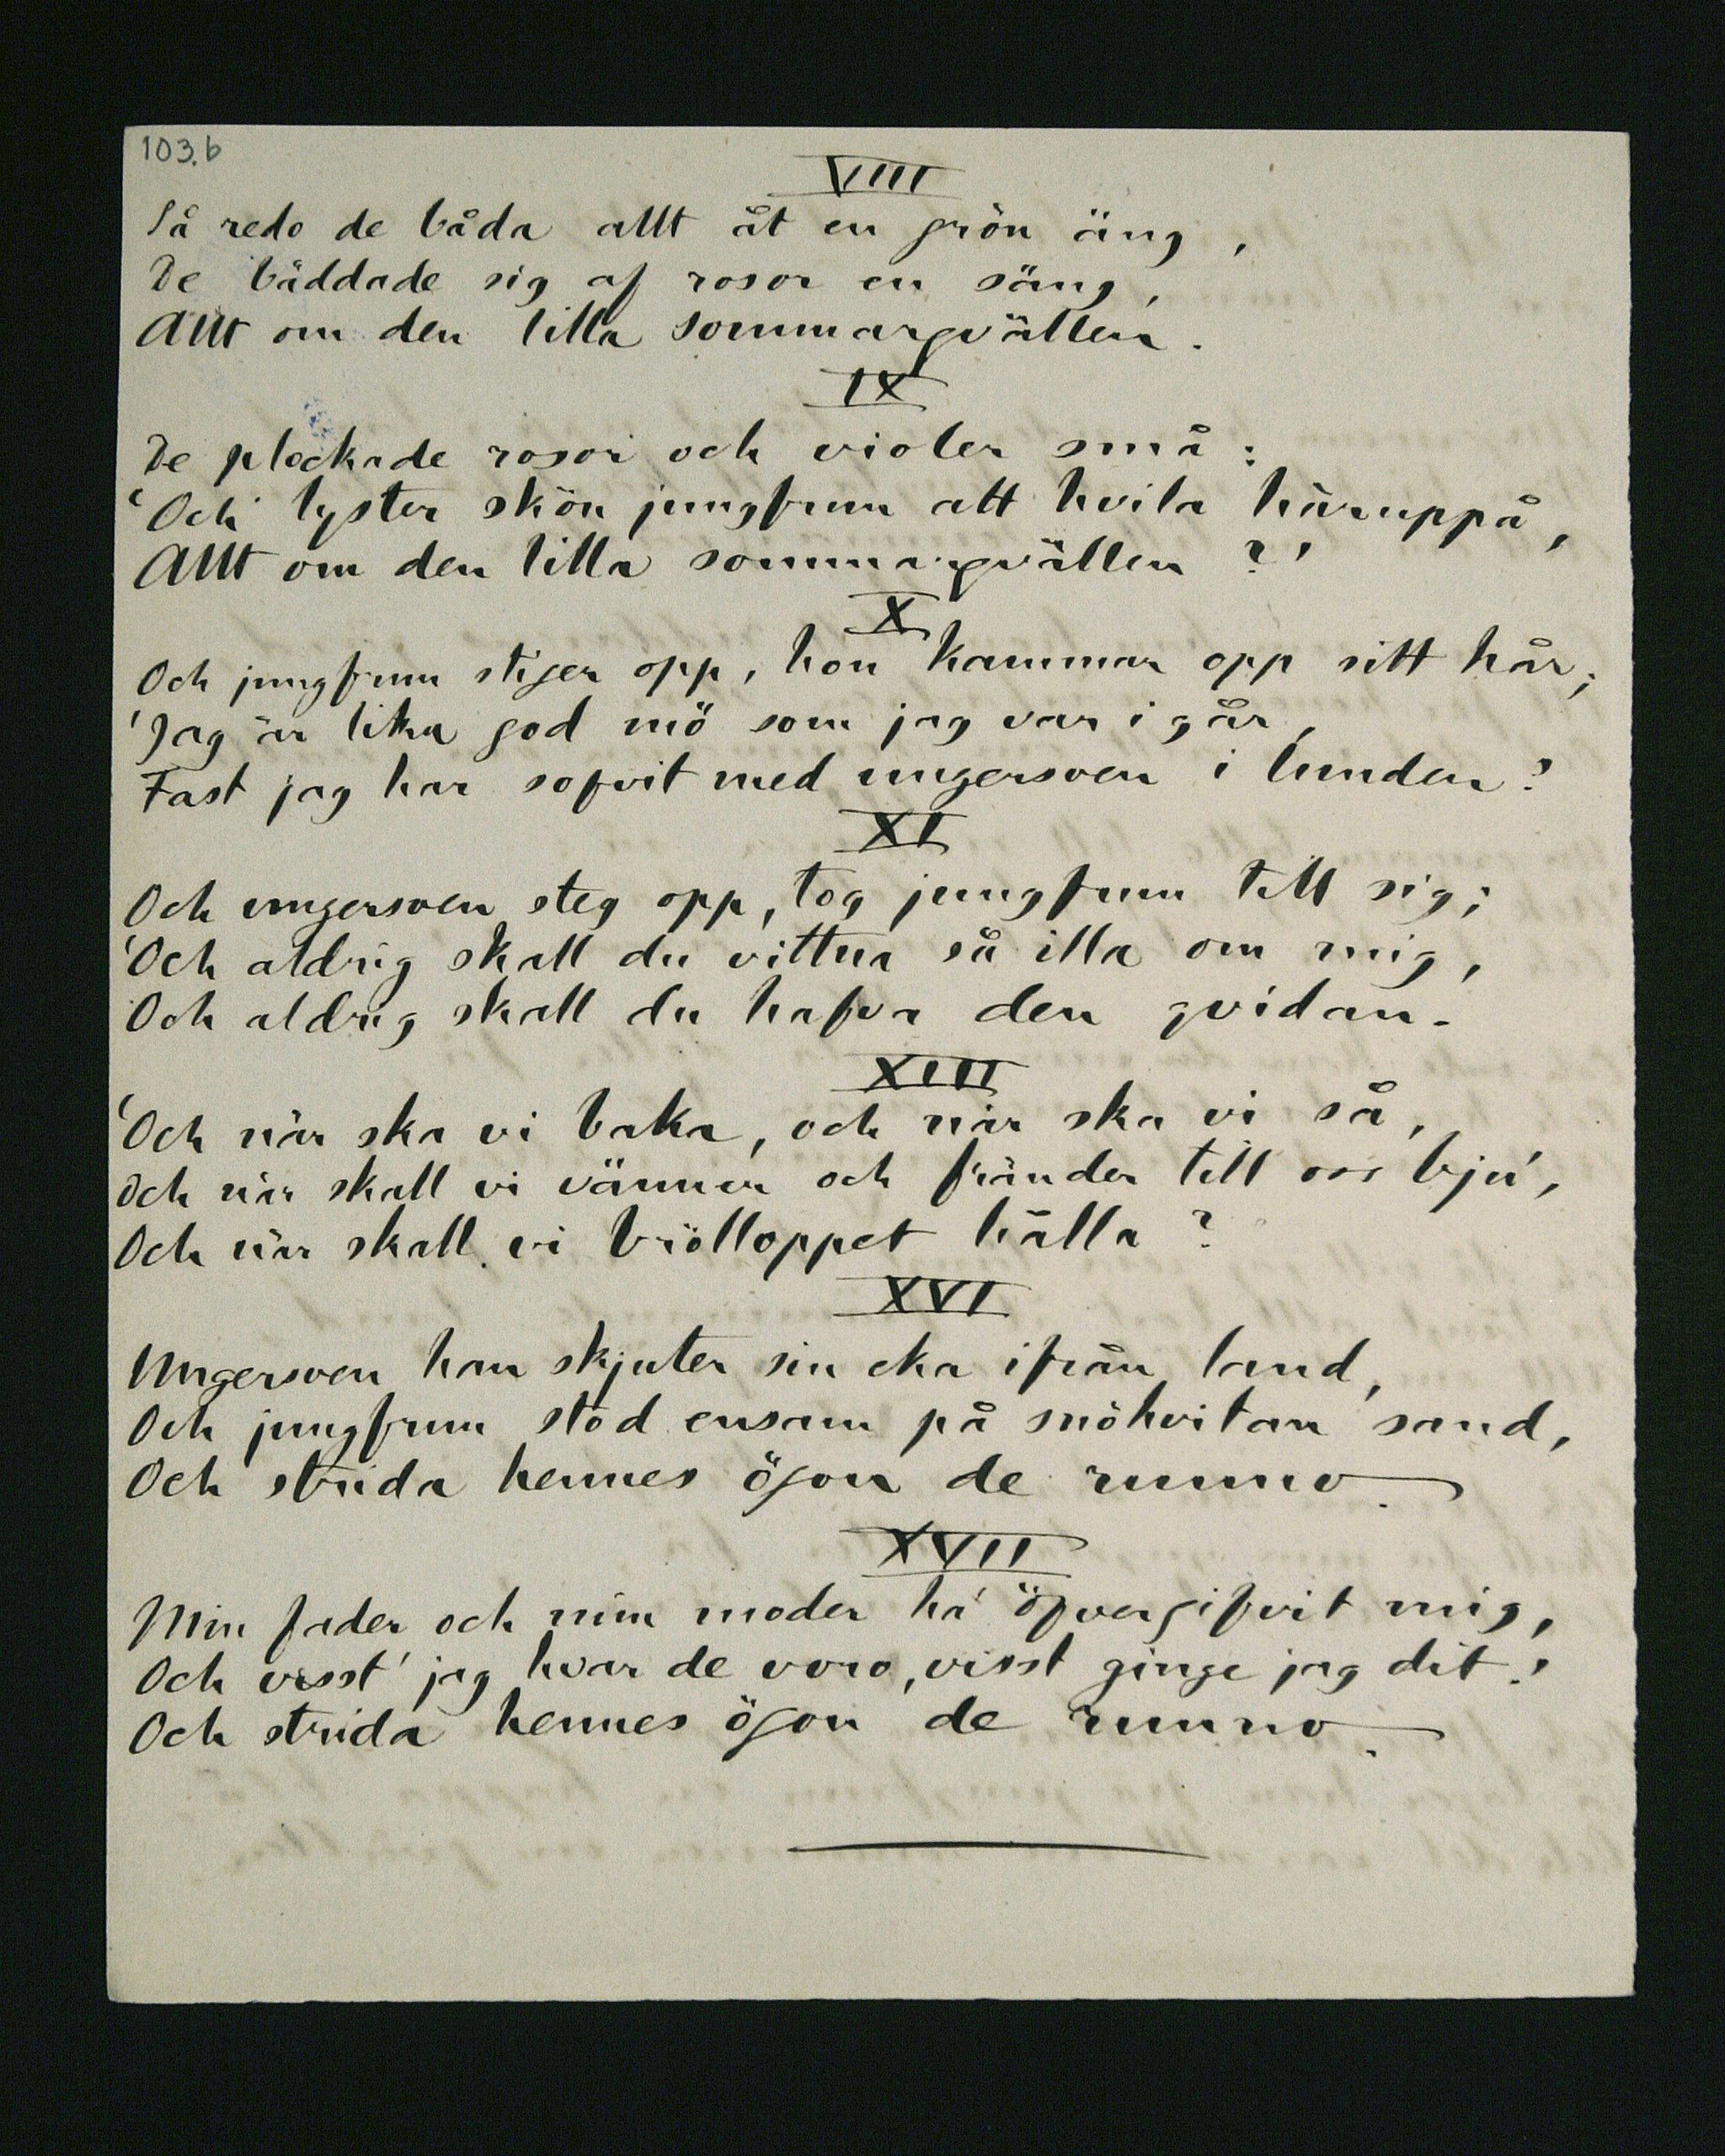 103.b
VIII
Så redo de båda allt åt en grön äng,
De bäddade sig af rosor en säng,
Allt om den lilla sommarqvällen.
IX
De plockade rosor och violer små:
'Och lyster skön jungfrun att hvila häruppå,
Allt om den lilla sommarqvällen?'
X
Och jungfrun stiger opp, hon kammar opp sitt hår;
'Jag är lika god mö som jag var i går,
Fast jag har sofvit med ungersven i lunden?
XI
Och ungersven steg opp, tog jungfrun till sig;
'Och aldrig skall du vittna så illa om mig,
Och aldrig skall du hafva den qvidan.
XIII
'Och när ska vi baka, och när ska vi så,
Och när skall vi vänner och fränder till oss bju',
Och när skall vi brölloppet hålla?
XVI
Ungersven han skjuter sin eka ifrån land,
Och jungfrun stod ensam på snöhvitan sand,
Och strida hennes ögon de runno.
XVII
Min fader och min moder ha' öfvergifvit mig,
Och visst' jag hvar de voro, visst ginge jag dit!
Och strida hennes ögon de runno.